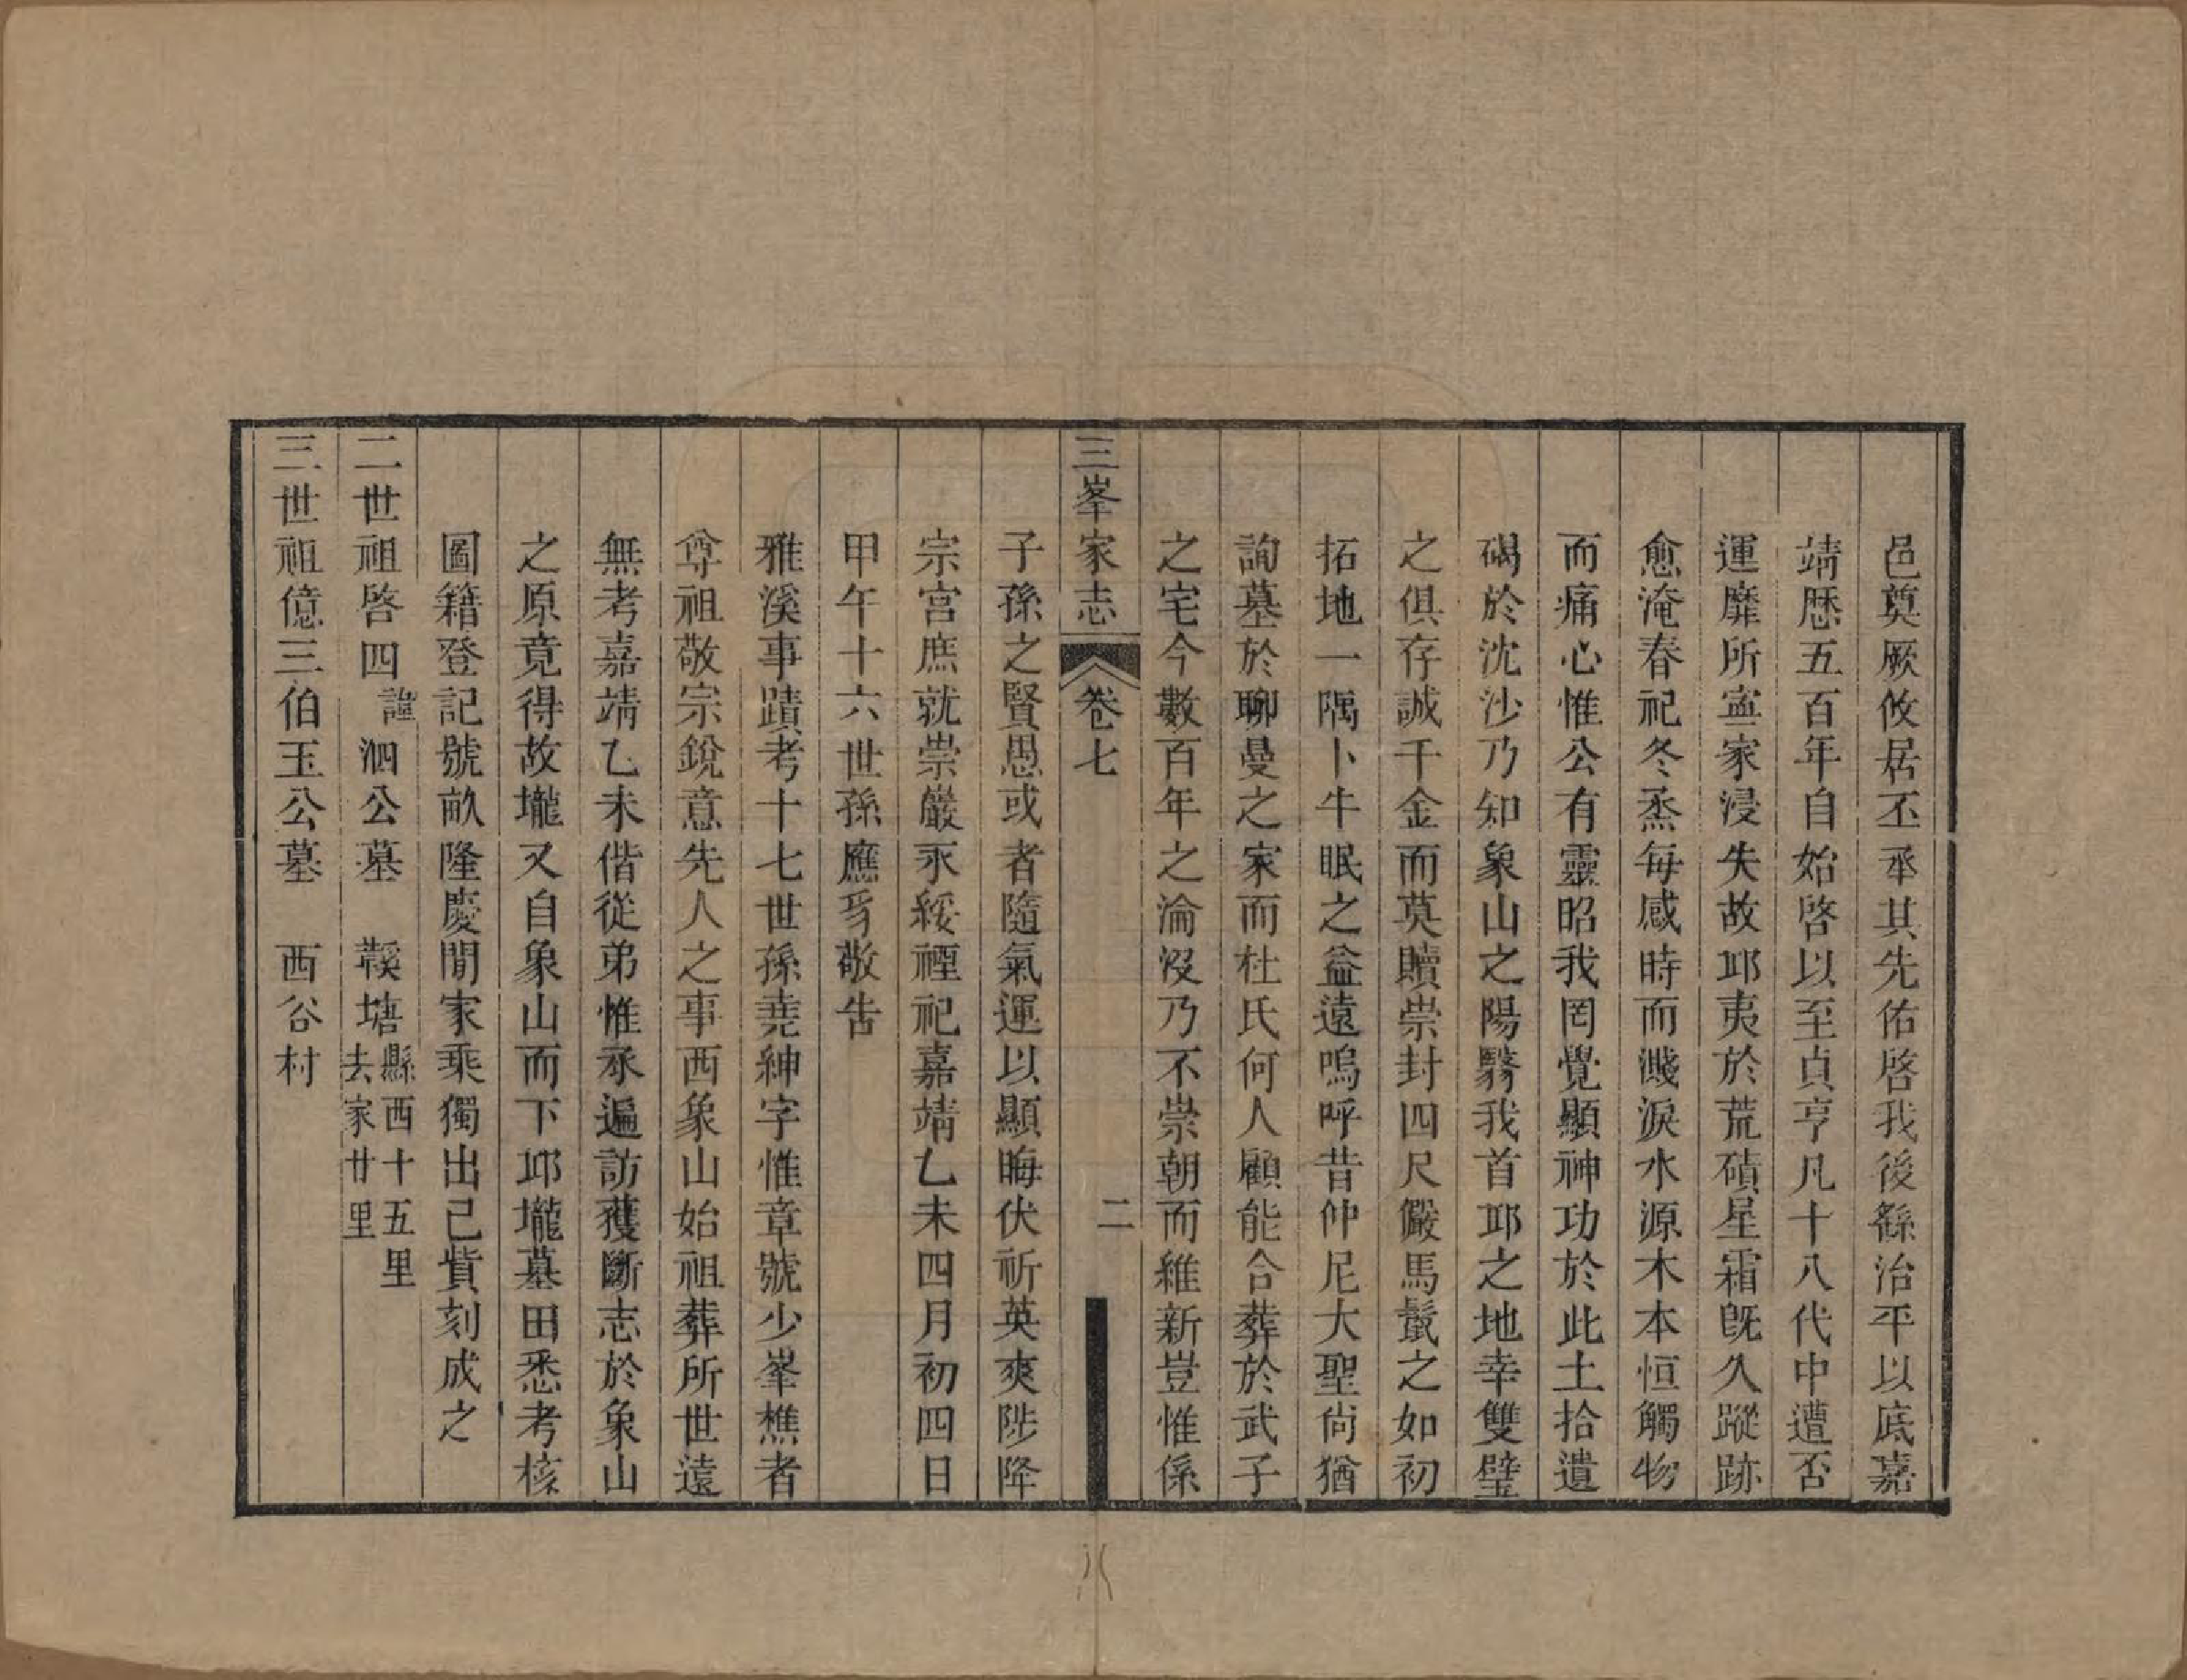 邑奠厥攸居丕承其先佑啓我後繇治平以底嘉
靖歷五百年自始啓以至貞亨凡十八代中遭否
運靡所寍家浸失故邱夷於荒磧星霜旣久蹤跡
愈淹春祀冬烝每感時而濺淚水源木本恒觸物
而痛心惟公有靈昭我罔覺顯神功於此土拾遺
碣於沈沙乃知象山之陽翳我首邱之地幸雙璧
之俱存誠千金而莫贖崇封四尺儼馬鬣之如初
拓地一隅卜牛眠之益遠嗚呼昔仲尼大聖尙猶
詢墓於聊曼之家而杜氏何人顧能合葬於武子
之宅今數百年之淪沒乃不崇朝而維新豈惟係
三峯家志
卷七
二
子孫之賢愚或者隨氣運以顯晦伏祈英爽陟降
宗宮庶就崇嚴永綏禋祀嘉靖乙未四月初四日
甲午十六世孫應豸敬告
雅溪事蹟考十七世孫堯紳字惟章號少峯樵者
尊祖敬宗銳意先人之事西象山始祖葬所世遠
無考嘉靖乙未偕從弟惟承遍訪獲斷志於象山
之原竟得故壠又自象山而下邱壠墓田悉考核
圖籍登記號畝隆慶間家乘獨出己貲刻成之
二世祖啓四諱泗公墓　塘縣西十五里去家廿里
三世祖億三伯玉公墓　西谷村